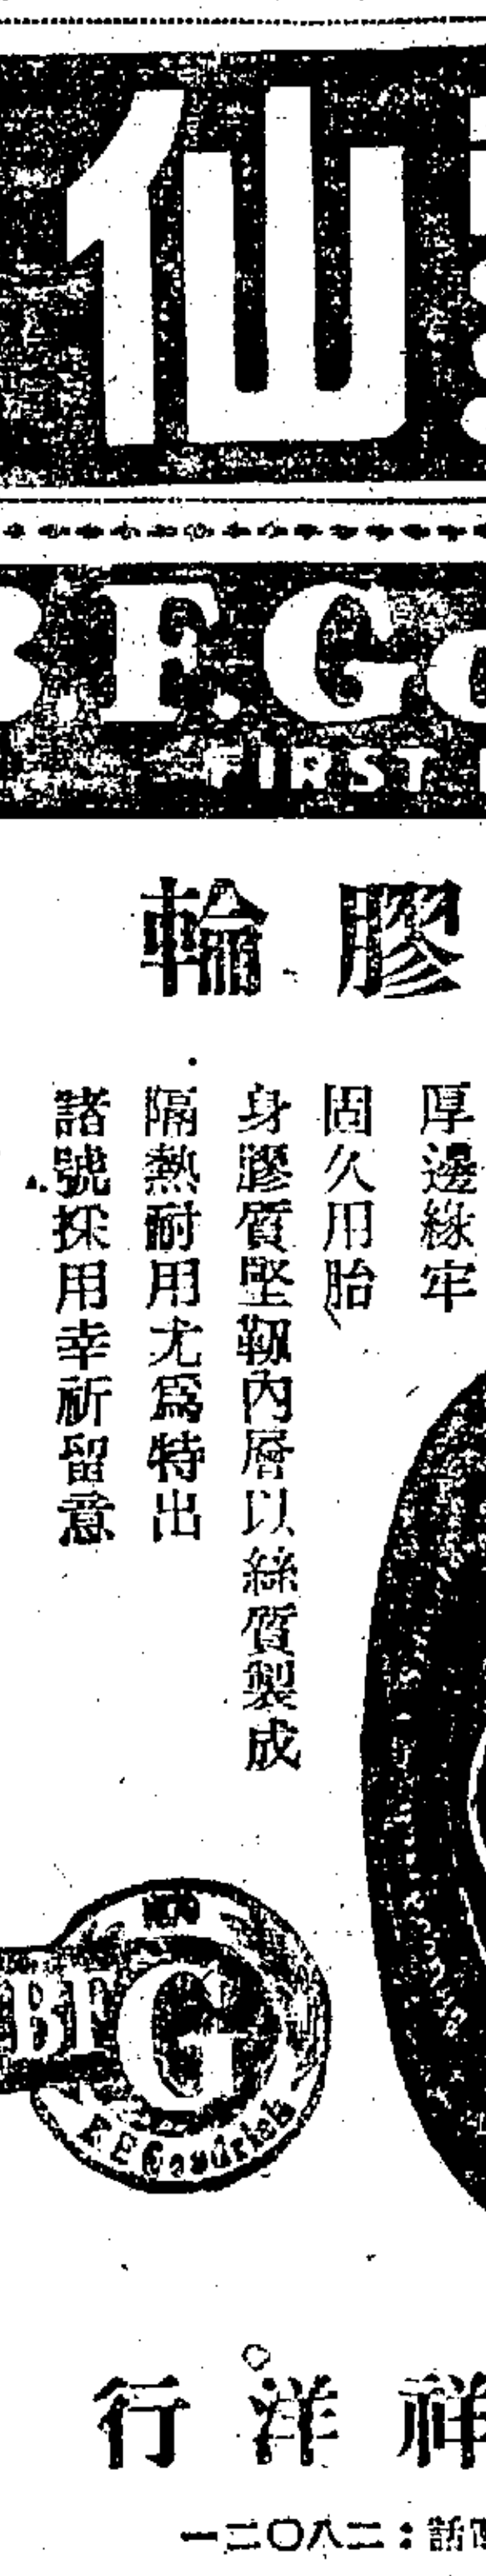 仙
B.F.Go
FIRST
膠輪
厚邊緣牢
固久用胎
身膠質堅靱內層以絲質製成
隔熱耐用尤爲特出
諸號採用幸祈留意
BFG
B F Goodrich
祥洋行
電話：二八〇二一